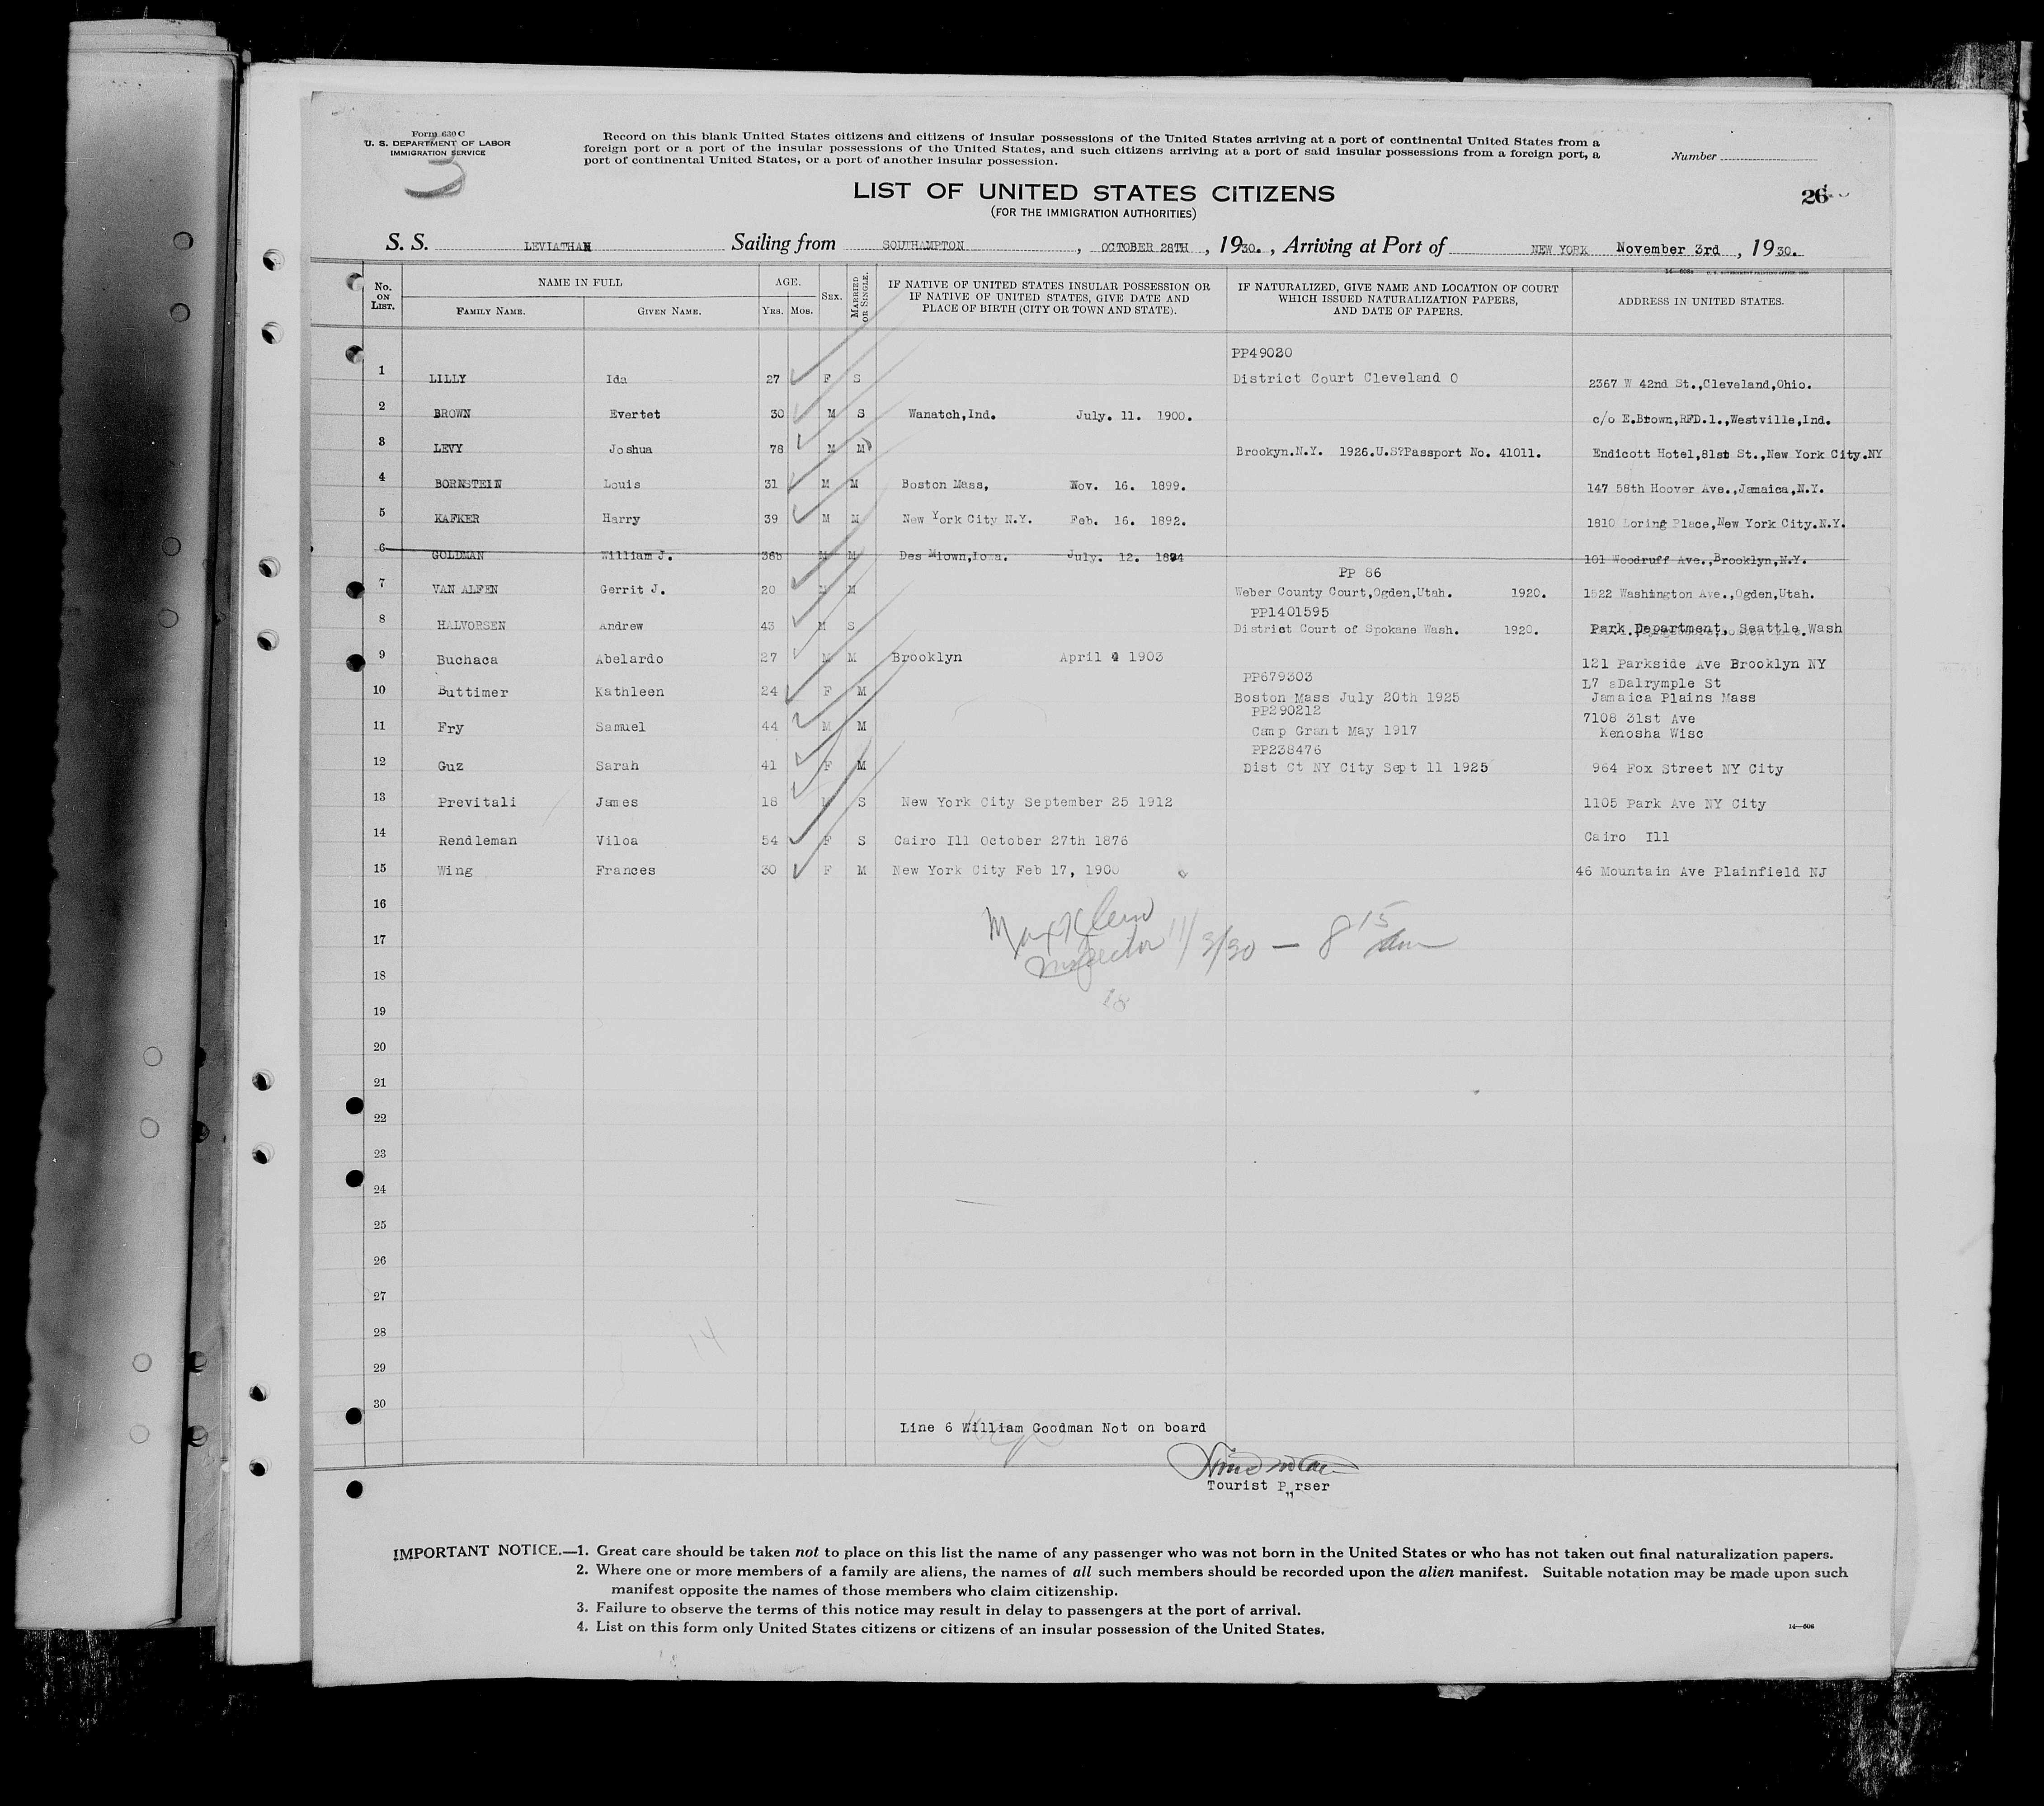 Form 630 C
U. S. DEPARTMENT OF LABOR
IMMIGRATION SERVICE
Record on this blank United States citizens and citizens of insular possessions of the United States arriving at a port of continental United States from a
foreign port or a port of the insular possessions of the United States, and such citizens arriving at a port of said insular possessions from a foreign port, a
port of continental United States, or a port of another insular possession.
Number
LIST OF UNITED STATES CITIZENS
(FOR THE IMMIGRATION AUTHORITIES)
26
S. S. LEVIATHAN Sailing from SOUTHAMPTON, OCTOBER 28TH, 1930., Arriving at Port of NEW YORK November 3rd, 1930.
No. ON LIST. NAME IN FULL FAMILY NAME. GIVEN NAME. AGE. YRS. MOS. SEX. MARRIED OR SINGLE. IF NATIVE OF UNITED STATES INSULAR POSSESSION OR IF NATIVE OF UNITED STATES, GIVE DATE AND PLACE OF BIRTH (CITY OR TOWN AND STATE). IF NATURALIZED, GIVE NAME AND LOCATION OF COURT WHICH ISSUED NATURALIZATION PAPERS, AND DATE OF PAPERS. ADDRESS IN UNITED STATES.
PP49020
1 LILLY Ida 27 F S District Court Cleveland O 2367 W 42nd St.,Cleveland,Ohio.
2 BROWN Evertet 30 M S Wanatch,Ind. July. 11. 1900. c/o E.Brown,RFD.1.,Westville,Ind.
3 LEVY Joshua 78 M M Brookyn.N.Y. 1926.U.S?Passport No. 41011. Endicott Hotel,81st St.,New York City.NY
4 BORNSTEIN Louis 31 M M Boston Mass, Nov. 16. 1899. 147 58th Hoover Ave.,Jamaica,N.Y.
5 KAFKER Harry 39 M M New York City N.Y. Feb. 16. 1892. 1810 Loring Place,New York City.N.Y.
6 GOLDMAN William J. 36 M M Des Miown,Iowa. July. 12. 1894 101 Woodruff Ave.,Brooklyn,N.Y.
PP 86
7 VAN ALFEN Gerrit J. 20 M M Weber County Court,Ogden,Utah. 1920. 1522 Washington Ave.,Ogden,Utah.
PP1401595
8 HALVORSEN Andrew 43 M S District Court of Spokane Wash. 1920. Park Department, Seattle Wash
9 Buchaca Abelardo 27 M M Brooklyn April 4 1903 121 Parkside Ave Brooklyn NY
PP679303 L7 aDalrymple St
10 Buttimer Kathleen 24 F M Boston Mass July 20th 1925 Jamaica Plains Mass
PP290212 7108 31st Ave
11 Fry Samuel 44 M M Camp Grant May 1917 Kenosha Wisc
PP238476
12 Guz Sarah 41 F M Dist Ct NY City Sept 11 1925 964 Fox Street NY City
13 Previtali James 18 M S New York City September 25 1912 1105 Park Ave NY City
14 Rendleman Viloa 54 F S Cairo Ill October 27th 1876 Cairo Ill
15 Wing Frances 30 F M New York City Feb 17, 1900 46 Mountain Ave Plainfield NJ
16
Max Klein
17
Inspector 11/3/30 — 8 15 am
18
19
20
21
22
23
24
25
26
27
28
14
29
30
Line 6 William Goodman Not on board
Tourist Purser
IMPORTANT NOTICE.—1. Great care should be taken not to place on this list the name of any passenger who was not born in the United States or who has not taken out final naturalization papers.
2. Where one or more members of a family are aliens, the names of all such members should be recorded upon the alien manifest. Suitable notation may be made upon such
manifest opposite the names of those members who claim citizenship.
3. Failure to observe the terms of this notice may result in delay to passengers at the port of arrival.
4. List on this form only United States citizens or citizens of an insular possession of the United States.
14—606